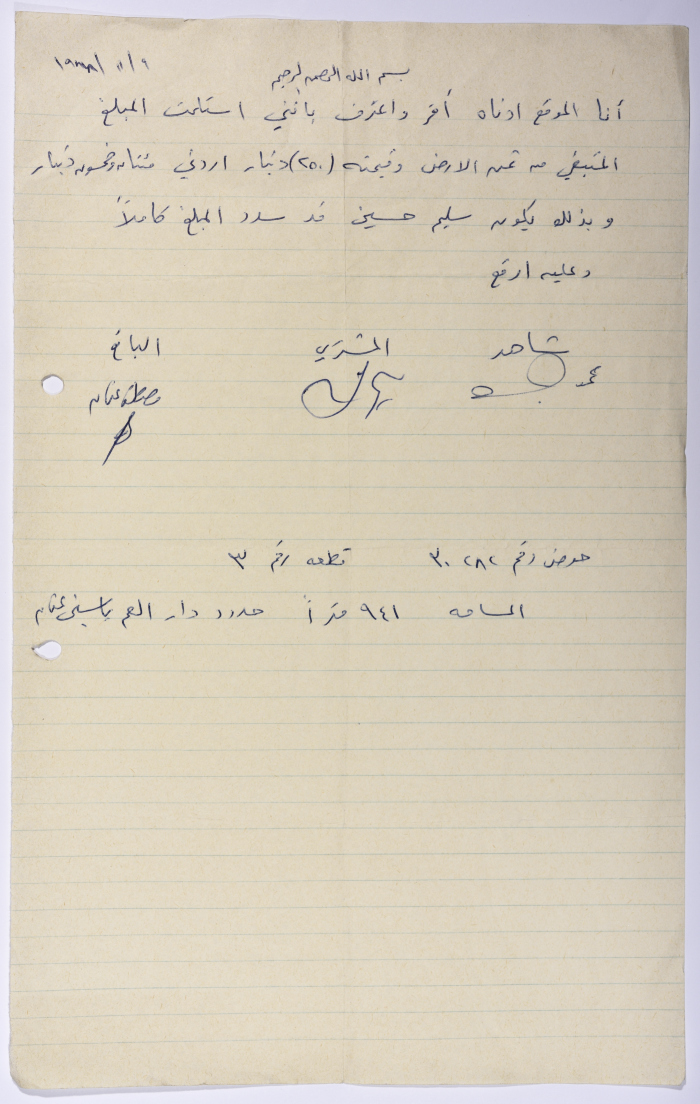 بسم الله الرحمن الرحيم
أنا الموقع ادناه أقر واعترف بأنني استلمت المبلغ
المتبقي من ثمن الارض وقيمته (٢٥٠) دينار اردني مئتان وخمسون دينار
وبذلك يكون سليم حسين قد سدد المبلغ كاملاً
وعليه اوقع
شاهد المشتري البائع
مصطفى عثمان
حوض رقم ٢٨٢ قطعه رقم ٣
المساحه ٩٤١ متراً حدود دار العم ياسين عثمان